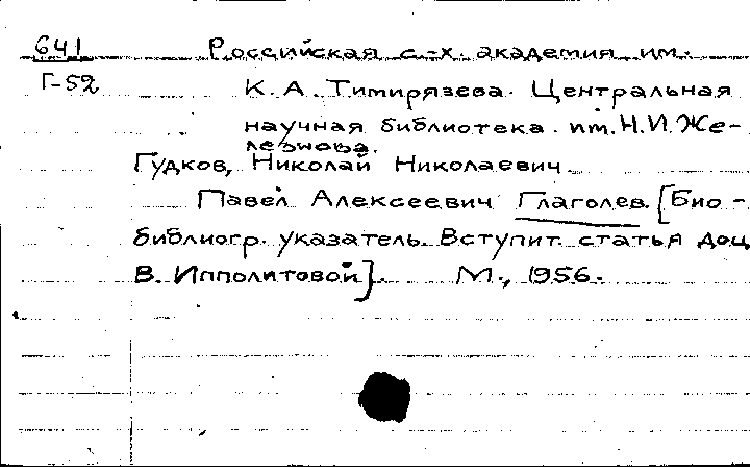 641 Российская с.-х. академия им.
Г-52 К. А. Тимирязева. Центральная
научная библиотека им. Н.И. Же-
лезнова.
Гудков, Николай Николаевич
Павел Алексеевич Глаголев. [Био-
библиогр. указатель. Вступит. статья доц
В. Ипполитовой]. М., 1956.